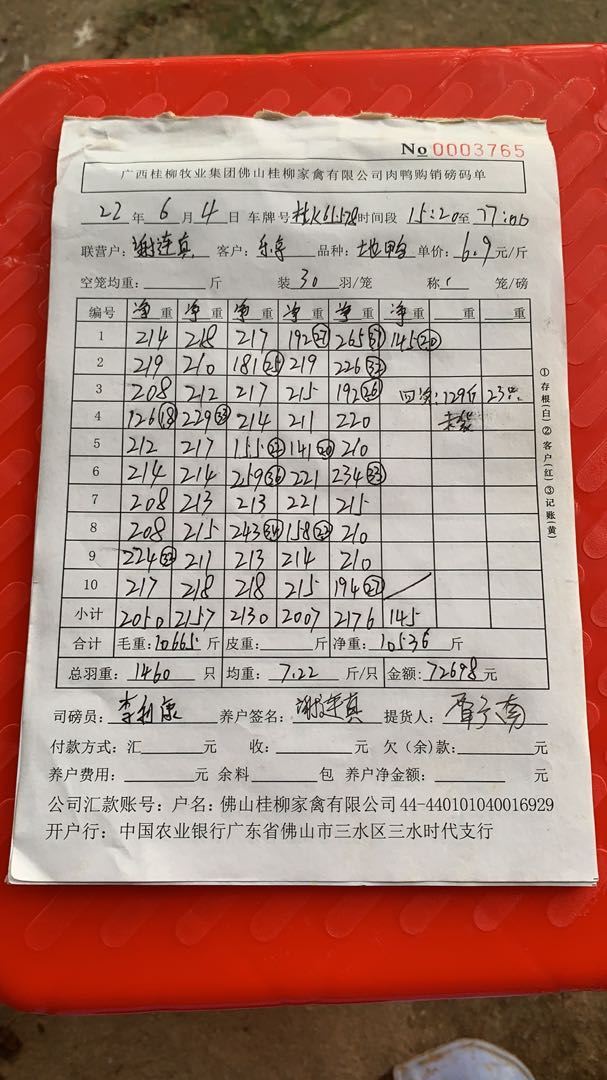 No 0003765
广西桂柳牧业集团佛山桂柳家禽有限公司肉鸭购销磅码单
22 年 6 月 4 日 车牌号 桂K61578 时间段 15:20 至 17:00
联营户: 谢连真 客户: 乐享 品种: 土地鸭 单价: 6.9 元/斤
空笼均重: 斤 装 30 羽/笼 称 笼/磅
编号 净重 净重 净重 净重 净重 净重 重 重
1 214 218 217 192(27) 265(37) 145(20)
2 219 210 181(25) 219 226(32)
3 208 212 217 215 192(26) 回资: 129斤 23只
4 126(18) 229(33) 214 211 220
5 212 217 155(22) 141(20) 210
6 214 214 259(36) 221 234(33)
7 208 213 213 221 215
8 208 215 243(34) 158(23) 210
9 224(32) 211 213 214 210
10 217 218 218 215 194(27)
小计 2050 2157 2130 2007 2176 145
合计 毛重: 10665 斤 皮重: 斤 净重: 10536 斤
总羽重: 1460 只 均重: 7.22 斤/只 金额: 72698 元
司磅员: 李利康 养户签名: 谢连真 提货人:
付款方式: 汇 元 收: 元 欠(余)款: 元
养户费用: 元 余料 包 养户净金额: 元
公司汇款账号: 户名: 佛山桂柳家禽有限公司 44-440101040016929
开户行: 中国农业银行广东省佛山市三水区三水时代支行
①存根(白)②客户(红)③记账(黄)